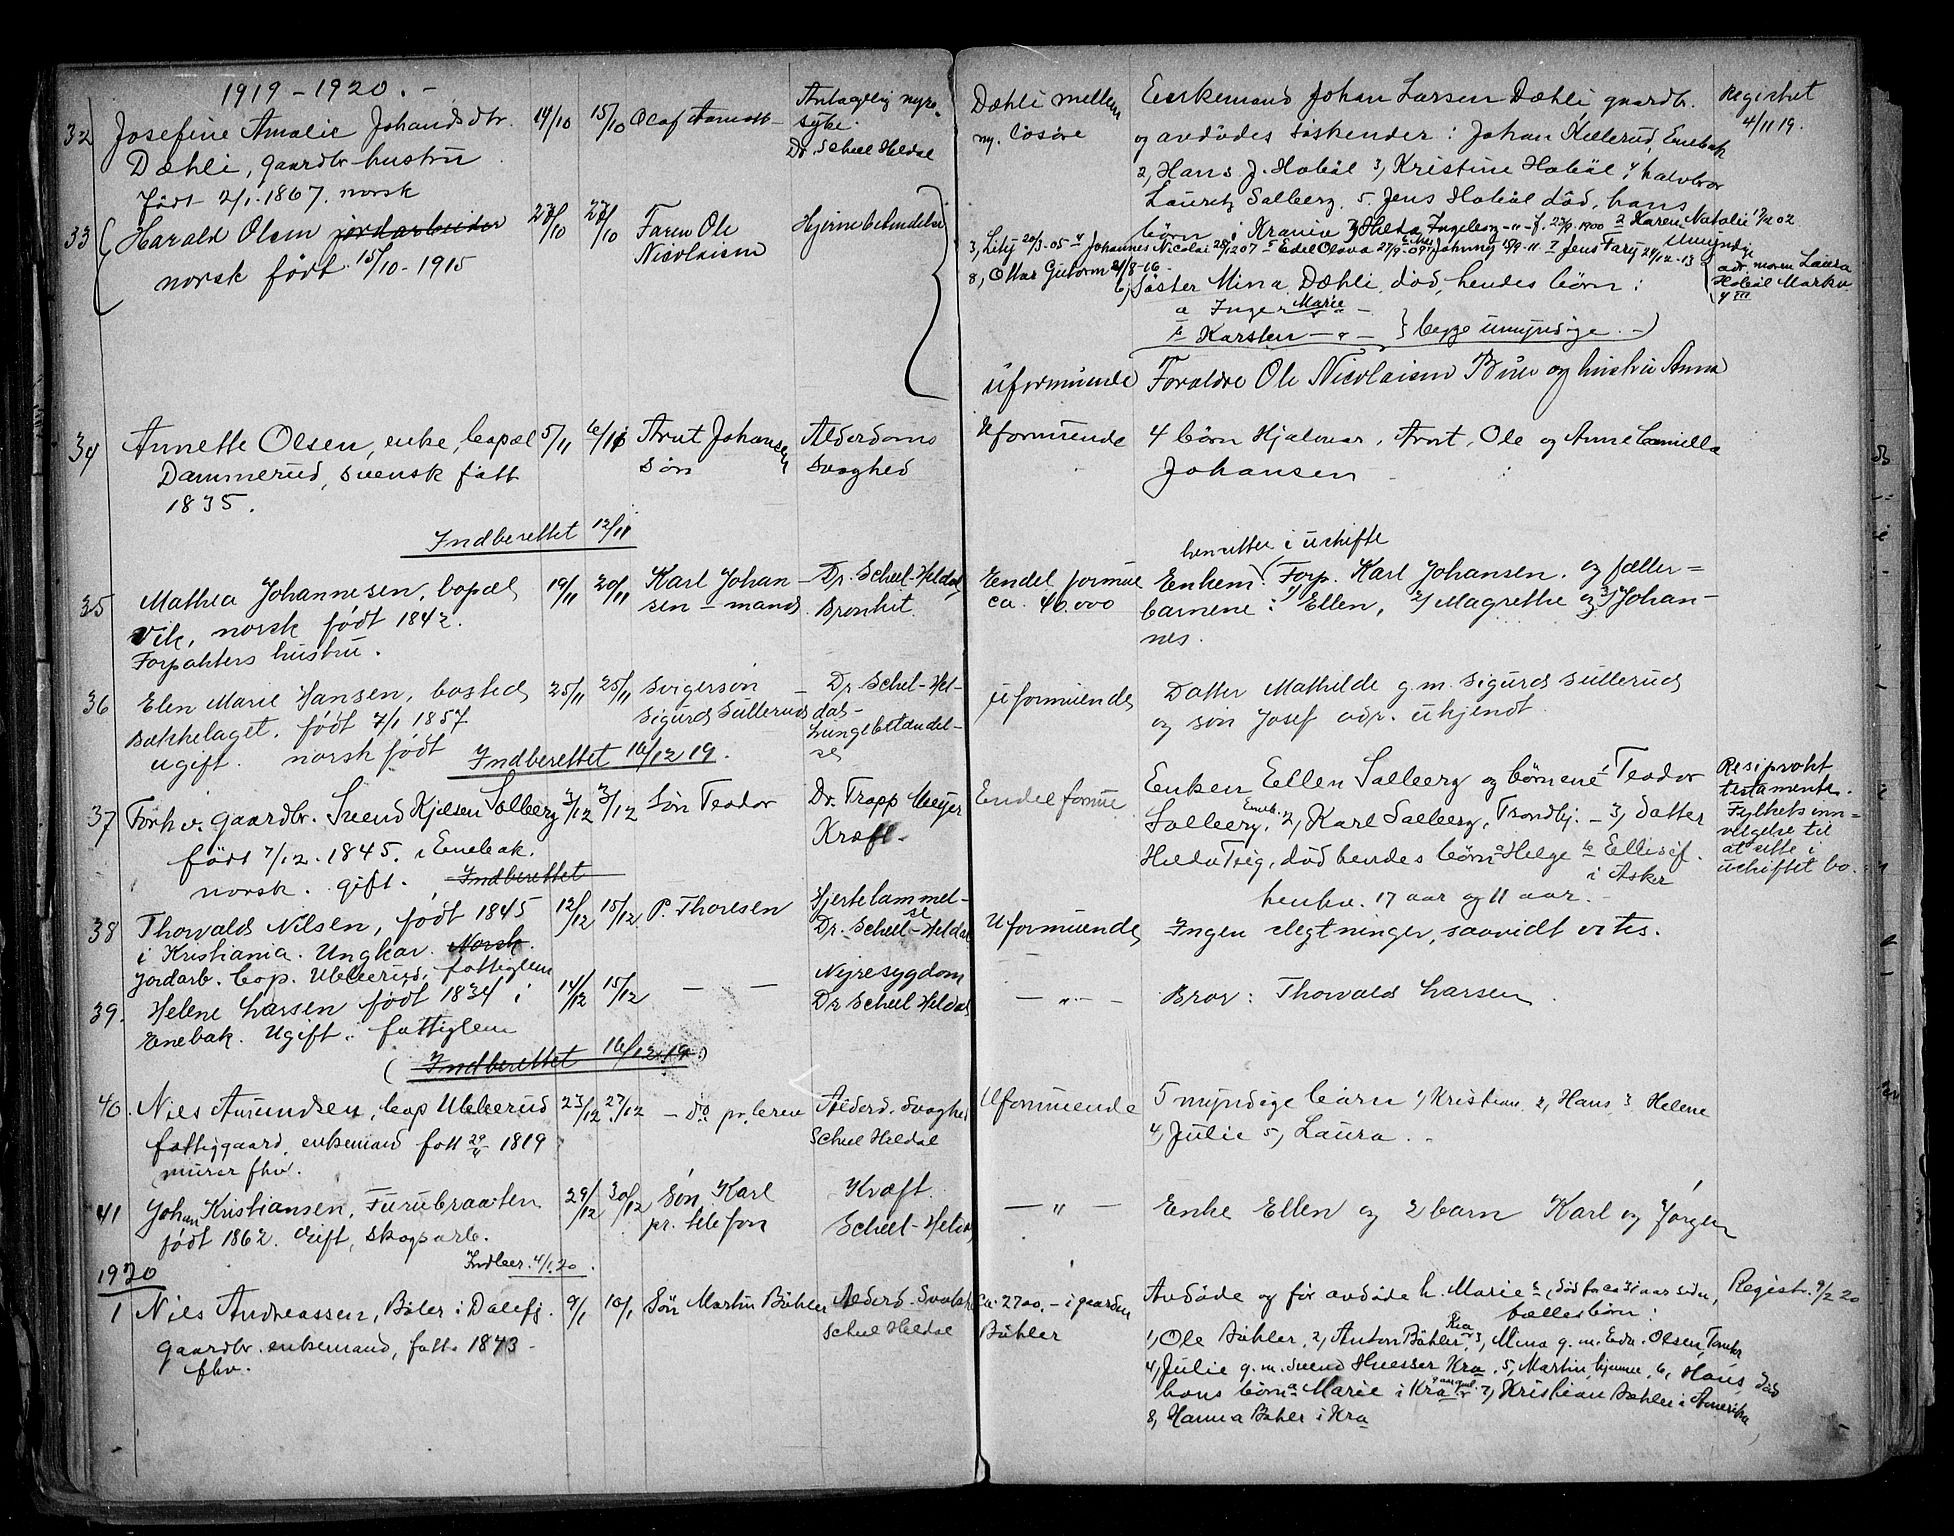 1919 – 1920. –
32 Josefine Amalie Johandsdtr. 14/10 15/10 Olaf Antagelig nyre-
Dæhli, gaardbr hustru syke.
Født 2/1. 1867. norsk Dr. Scheel Heldal
33 Harald Olsen jordarbeider 27/10 Faren Ole Hjernebetendelse
norsk født 15/10 - 1915 Nicolaisen
34 Annette Olsen, enke, bopæl 5/11 6/11 Arnt Johansen Alderdoms
Dammerud, svensk født søn svaghed
1835.
Indberettet 12/11
35 Mathea Johannesen, bopæl 19/11 20/11 Karl Johan – Dr. Scheel-Heldal,
Vik, norsk født 1842. sen – mand Bronkit.
Forpakters hustru.
36 Elen Marie Hansen, bosted 25/11 25/11 Svigersøn – Dr. Schel-Hel-
Bakkelaget. født 7/1 1857 Sigurd Sulleruds dal-
ugift. norsk født Lungebetændel-
Indberettet 16/12 19. se
37 Forhv. gaardbr. Svend Kjelsen Solberg 3/12 3/12 Søn Teodor Dr. Trapp Meyer
født 7/12. 1845. i Enebak. Kræft.
norsk. gift. Indberettet
38 Thorvald Nilsen, født 1845 12/12 15/12 P. Thoresen Hjertelammel-
i Kristiania. Ungkar. Norsk. se
Jordarb. bop. Ubberud, fattiglem Dr. Scheel-Heldal
39. Helene Larsen født 1834 i 14/12 15/12 – – Nyresygdom
Enebak. Ugift. fattiglem Dr. Scheel Heldal
(Indberettet 16/12 19.)
40. Niels Amundsen, bop Ubberud 23/12 27/12 – do pr. brev Alderd. svaghed
fattiggaard, enkemand født 1819 Scheel Heldal
murer fhv.
41 Johan Kristiansen, Furubraaten 29/12 30/12 Søn Karl Kræft.
født 1862. Gift, skogsarb. pr. telefon Scheel-Heldal
Indber. 4/1. 20.
1920
1 Niels Andreassen, Bøler i Dalefj. 9/1 10/1 Søn Martin Bøhler Alderd. Svakh
gaardbr. enkemand, født. 1843 – Scheel Heldal
fhv.
Dæhli mellem Enkemand Johan Larsen Dæhli gaardbr. Registret
ny. løsøre og avdødes søskender: Johan Killerud, Enebak 4/11 19.
2, Hans J. Hobøl 3, Kristine Hobøl, 4 halvbror
Lauritz Solberg. 5. Jens Hobøl død, hans
børn i Kraner 1 Hilda Ingeborg –"– f. 27/9. 1900 2 Karen Natalie 02
3, Lilly 20/3-05 4 Johannes Nicolai 28/12 07 5 Edel Olava 27/9-09 Johnny 10/9-11 7 Jens Farg 21/12-13 umyndige
8, Ottar Gutorm 21/8-16 – adr. moren Laura
6, søster Mina Dæhli, død, hendes børn: Hobøl Markv.
a Inger Marie –
b Karsten –"– } begge umyndige. –)
Uformuende Forældre Ole Nicolaisen Bure og hustru Anna
Uformuende 4 børn Hjalmar, Arnt, Ole og Anne Camilla
Johansen
hensitter i uskifte
Endel formue Enkem. Forp. Karl Johansen. og fæller=
ca. 46.000 barnene: 1) Ellen, 2) Magrethe og 3) Johan-
nes.
Uformuende Datter Mathilde g. m. Sigurd Sullerud
og søn Josef adr. ukjendt.
Endel formue Enken Ellen Solberg og børnene 1 Teodor Resiprokt
Solberg, Eneb. 2, Karl Solberg, Trondhj. – 3, datter testamente.
Hilda Teig, død hendes børn a Helge b Ellisif. Fylkets inn=
i Asker vilgelse til
henhv. 17 aar og 11 aar. – at sitte i
uskiftet bo.
Uformuende Ingen slegtninger, saavidt vites.
– " – Bror: Thorvald Larsen.
Uformuende 5 myndige børn 1, Kristian. 2, Hans 3 Helene
4, Julie 5, Laura.
– " – Enke Ellen og 2 barn Karl og Jørgen
Ca. 2700. – i gaarden Avdøde og før avdøde h. Marie's, død for ca 31 aar siden, Registr. 9/2 20
Bøhler fællesbørn:
1, Ole Bøhler, 2, Anton Bøhler, Kra 3, Mina g. m. Edv. Olsen,
4, Julie g. m. Svend Huesser Kra. 5, Martin, hjemme, 6, Hans, død
hans børn a Marie i Kra. 7, Kristian Bøhler i Amerika,
8, Hanna Bøhler i Kra